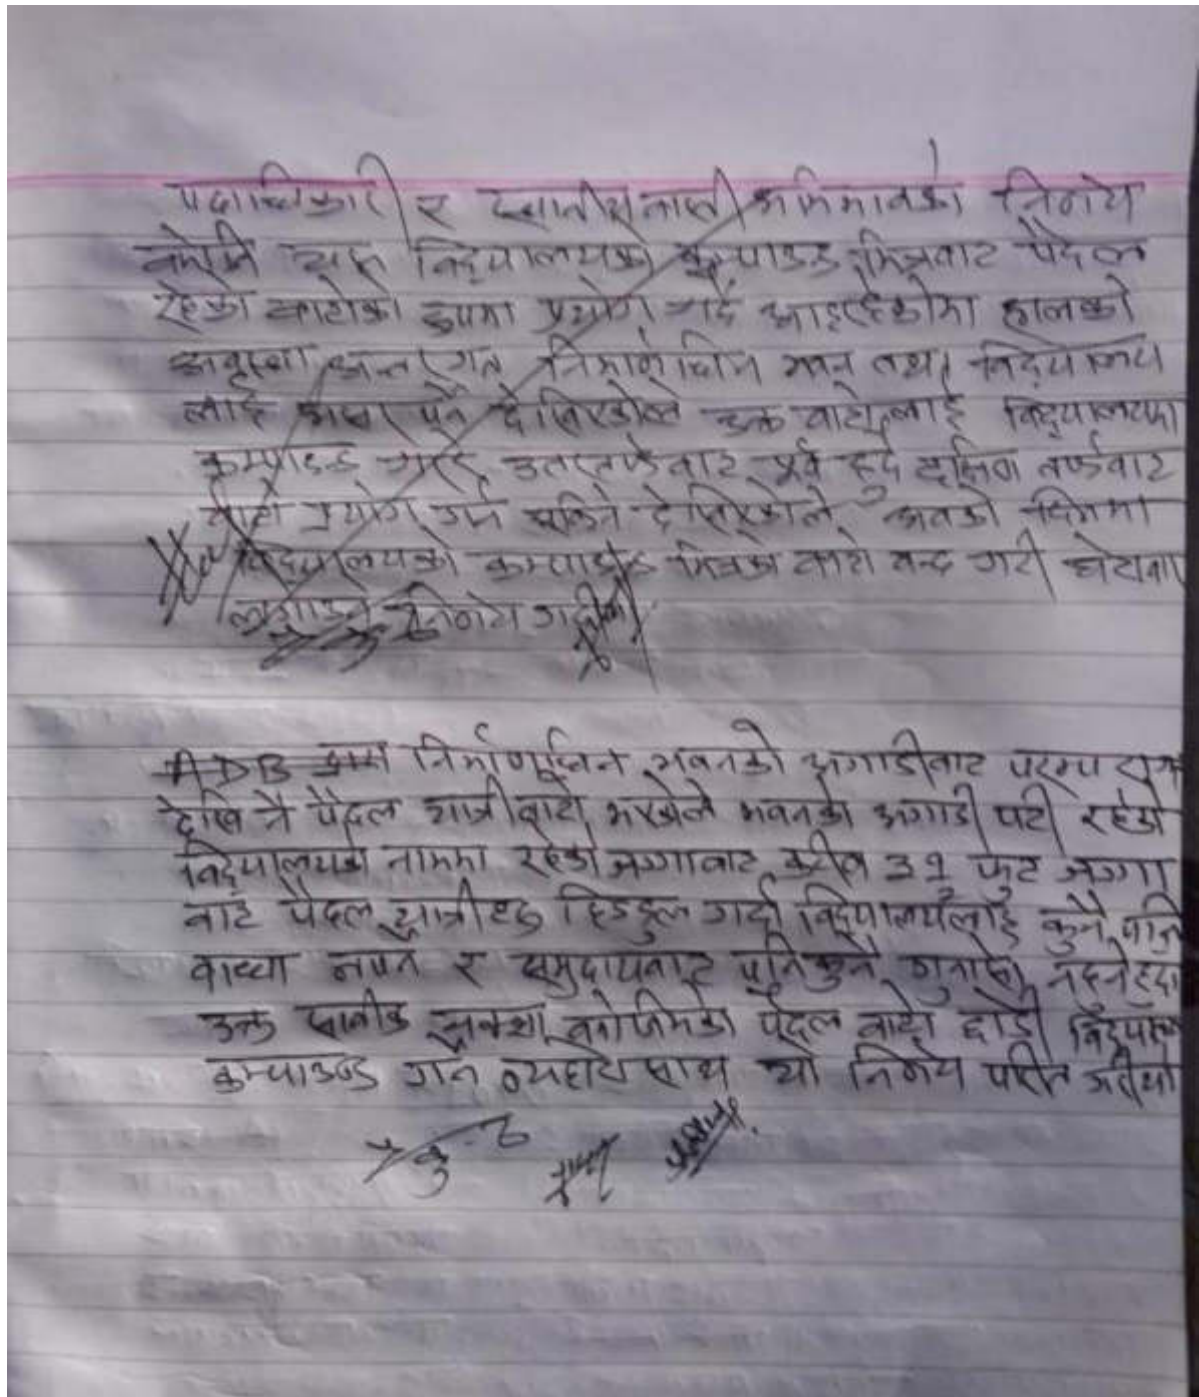 पदाधिकारी र स्थानीयवासी अभिभावकको निर्णय
बमोजिम यस विद्यालयको कम्पाउण्ड भित्रबाट पैदल
रहेको बाटोको रुपमा प्रयोग गर्दै आइरहेकोमा हालको
अवस्था अन्तरगत निर्माणाधिन भवन तथा विद्यालय
लाई पर्न देखिएकोले उक्त बाटोलाई विद्यालयमा
कम्पाउण्ड गराई उतरतर्फबाट पूर्व हुदै दक्षिण तर्फबाट
बाटो प्रयोग गर्न सकिने देखिएकोले अबको दिनमा
विद्यालयको कम्पाउण्ड भित्रको बाटो बन्द गरी घेराबार
लगाउने निर्णय गरियो
ADB द्वारा निर्माणाधिन भवनको अगाडीबाट परम्परागत
देखि नै पैदल यात्री बाटो भएकोले भवनको अगाडी पटी रहेको
विद्यालयको नाममा रहेको जग्गाबाट करीब 31 फुट जग्गा
बाट पैदल यात्रीहरु हिडडुल गर्दा विद्यालयलाई कुनै पनि
बाध्या नपर्ने र समुदायबाट पनि कुनै गुनासो नहुने हुदा
उक्त साबीक नक्शा बमोजिमको पैदल बाटो छाडी विद्यालय
कम्पाउण्ड गर्न व्यहोरा साथ यो निर्णय पारित गरीयो